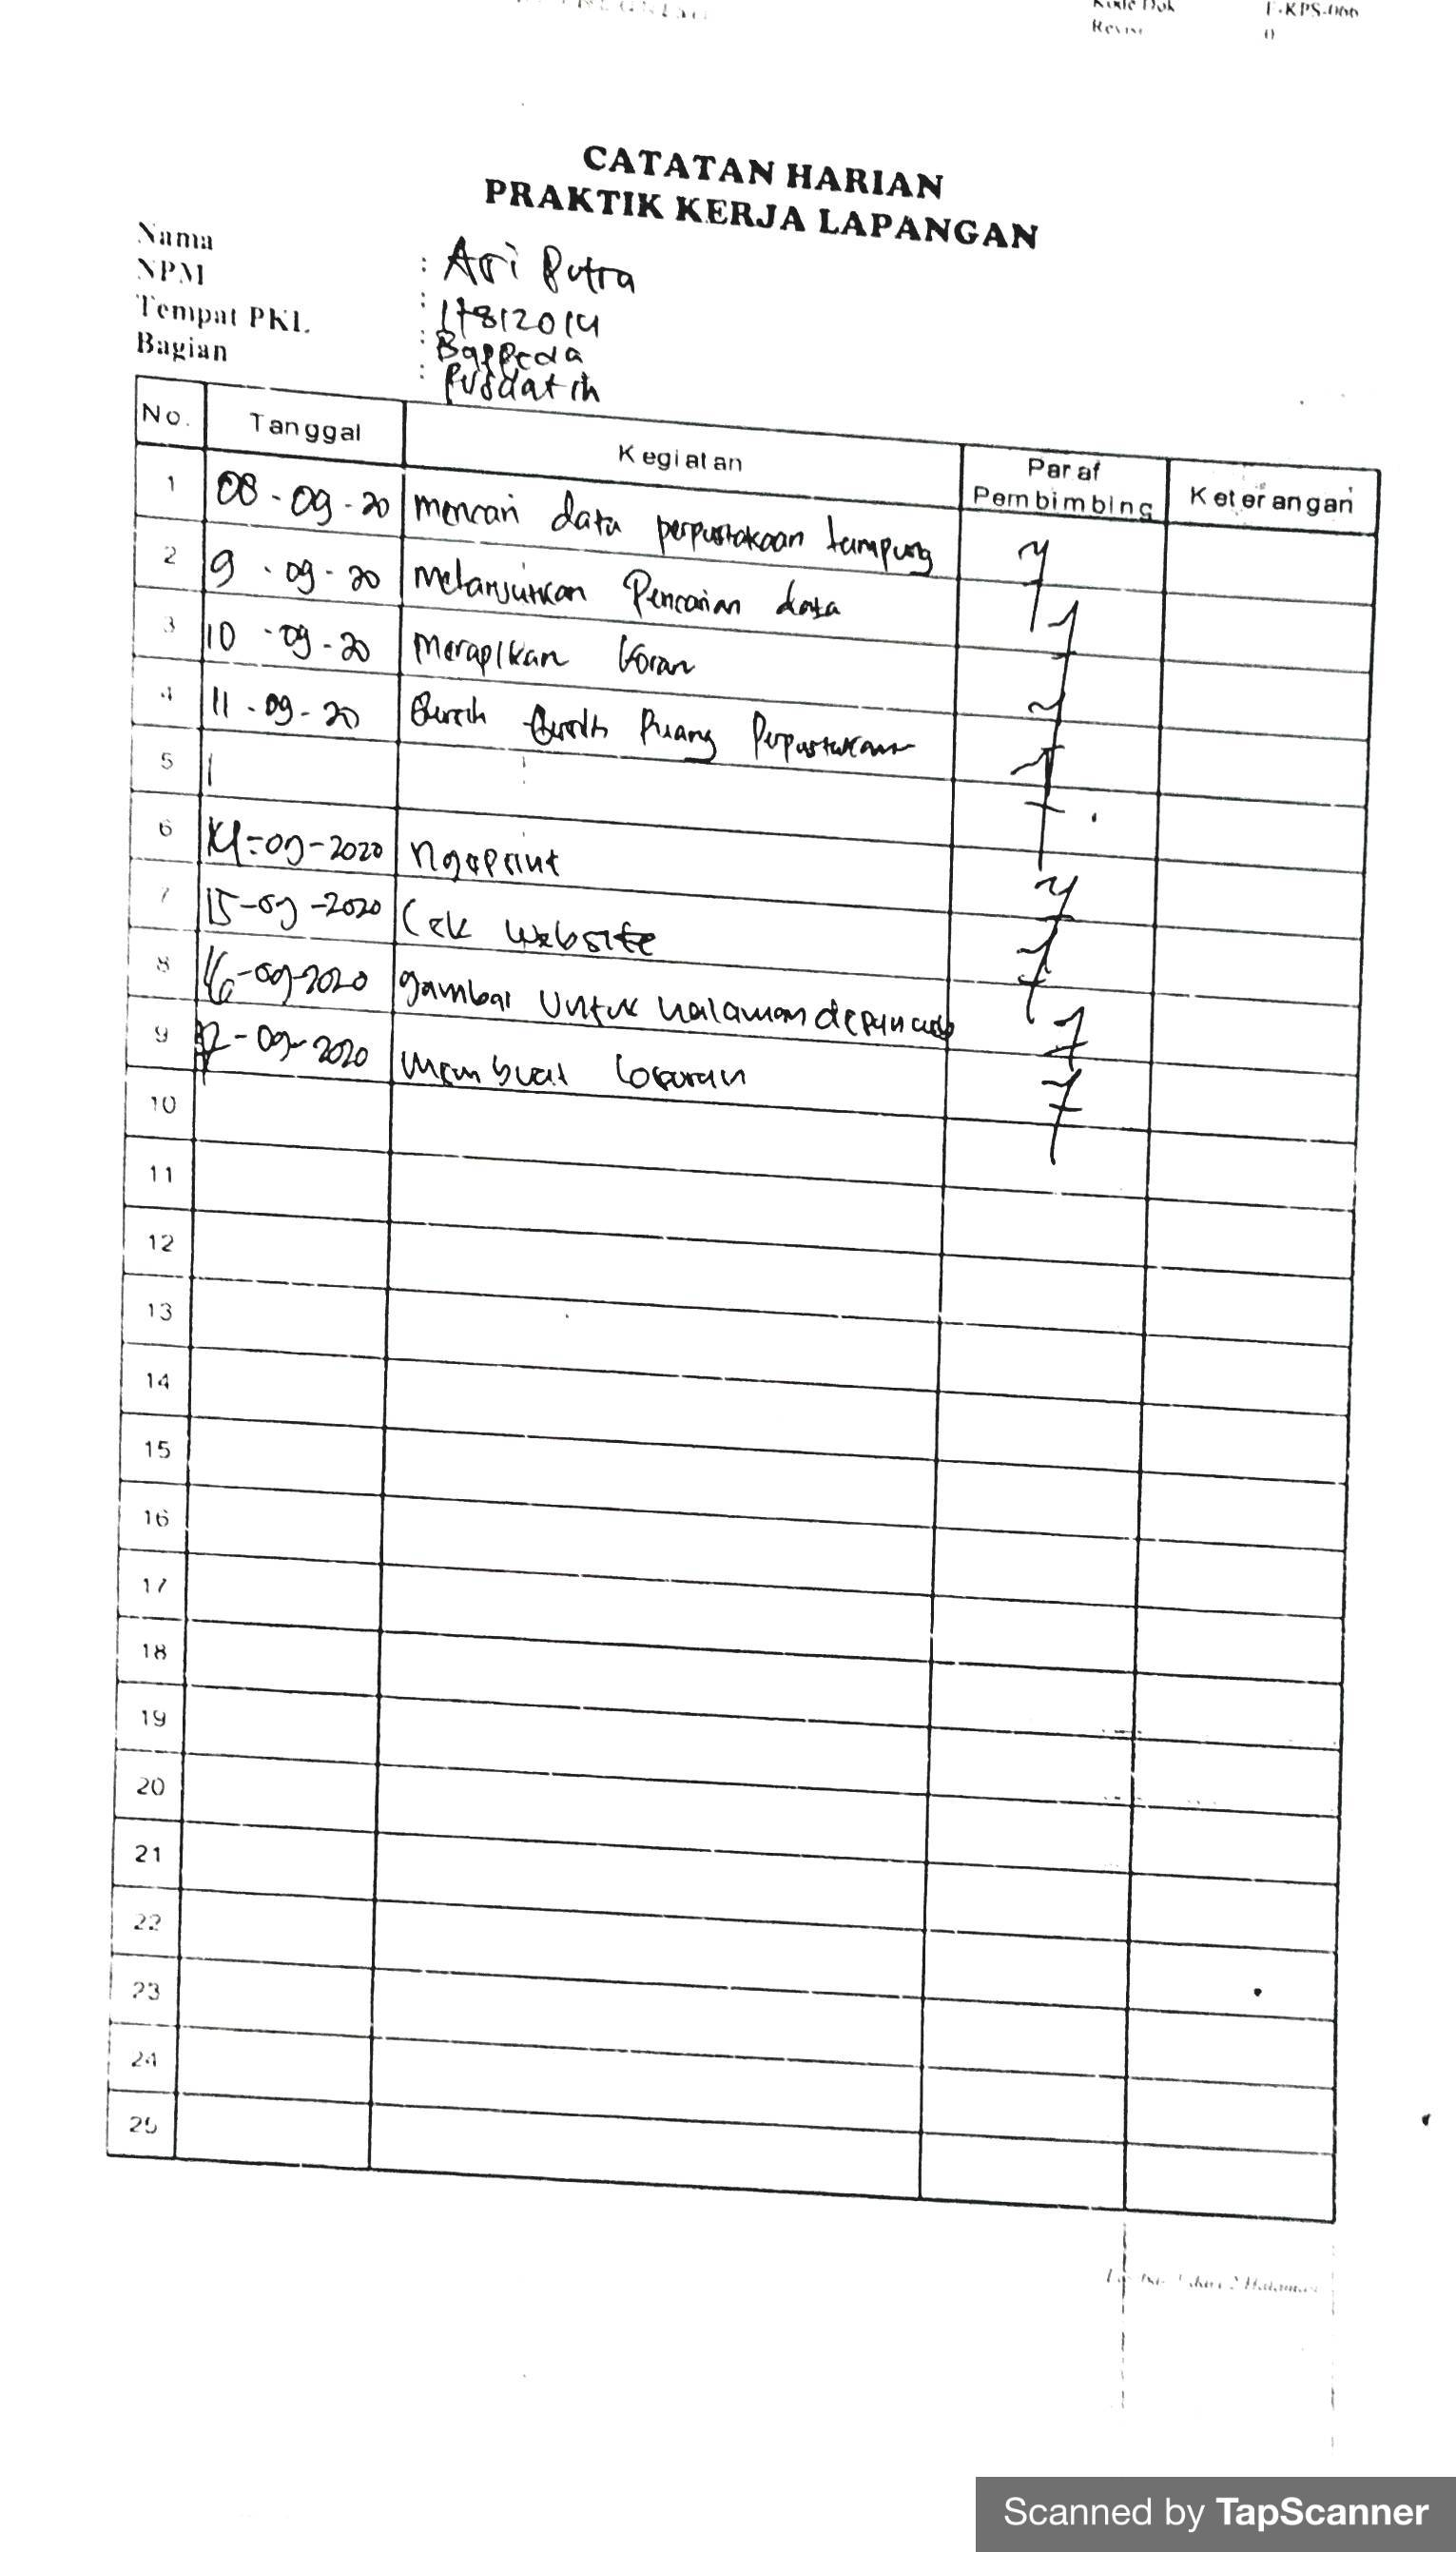 Kode Dok F-KPS-066
Revisi 0
CATATAN HARIAN
PRAKTIK KERJA LAPANGAN
Nama : Ari Putra
NPM : 17812014
Tempat PKL : Bappeda
Bagian : Pusdatin
No. Tanggal Kegiatan Paraf Pembimbing Keterangan
1 08-09-20 mencari data perpustakaan Lampung
2 9-09-20 Melanjutkan Pencarian data
3 10-09-20 Merapikan koran
4 11-09-20 Bersih Bersih Ruang Perpustakaan
5
6 14-09-2020 Ngeprint
7 15-09-2020 Cek website
8 16-09-2020 gambar untuk halaman depan
9 17-09-2020 membuat
10
11
12
13
14
15
16
17
18
19
20
21
22
23
24
25
Scanned by TapScanner